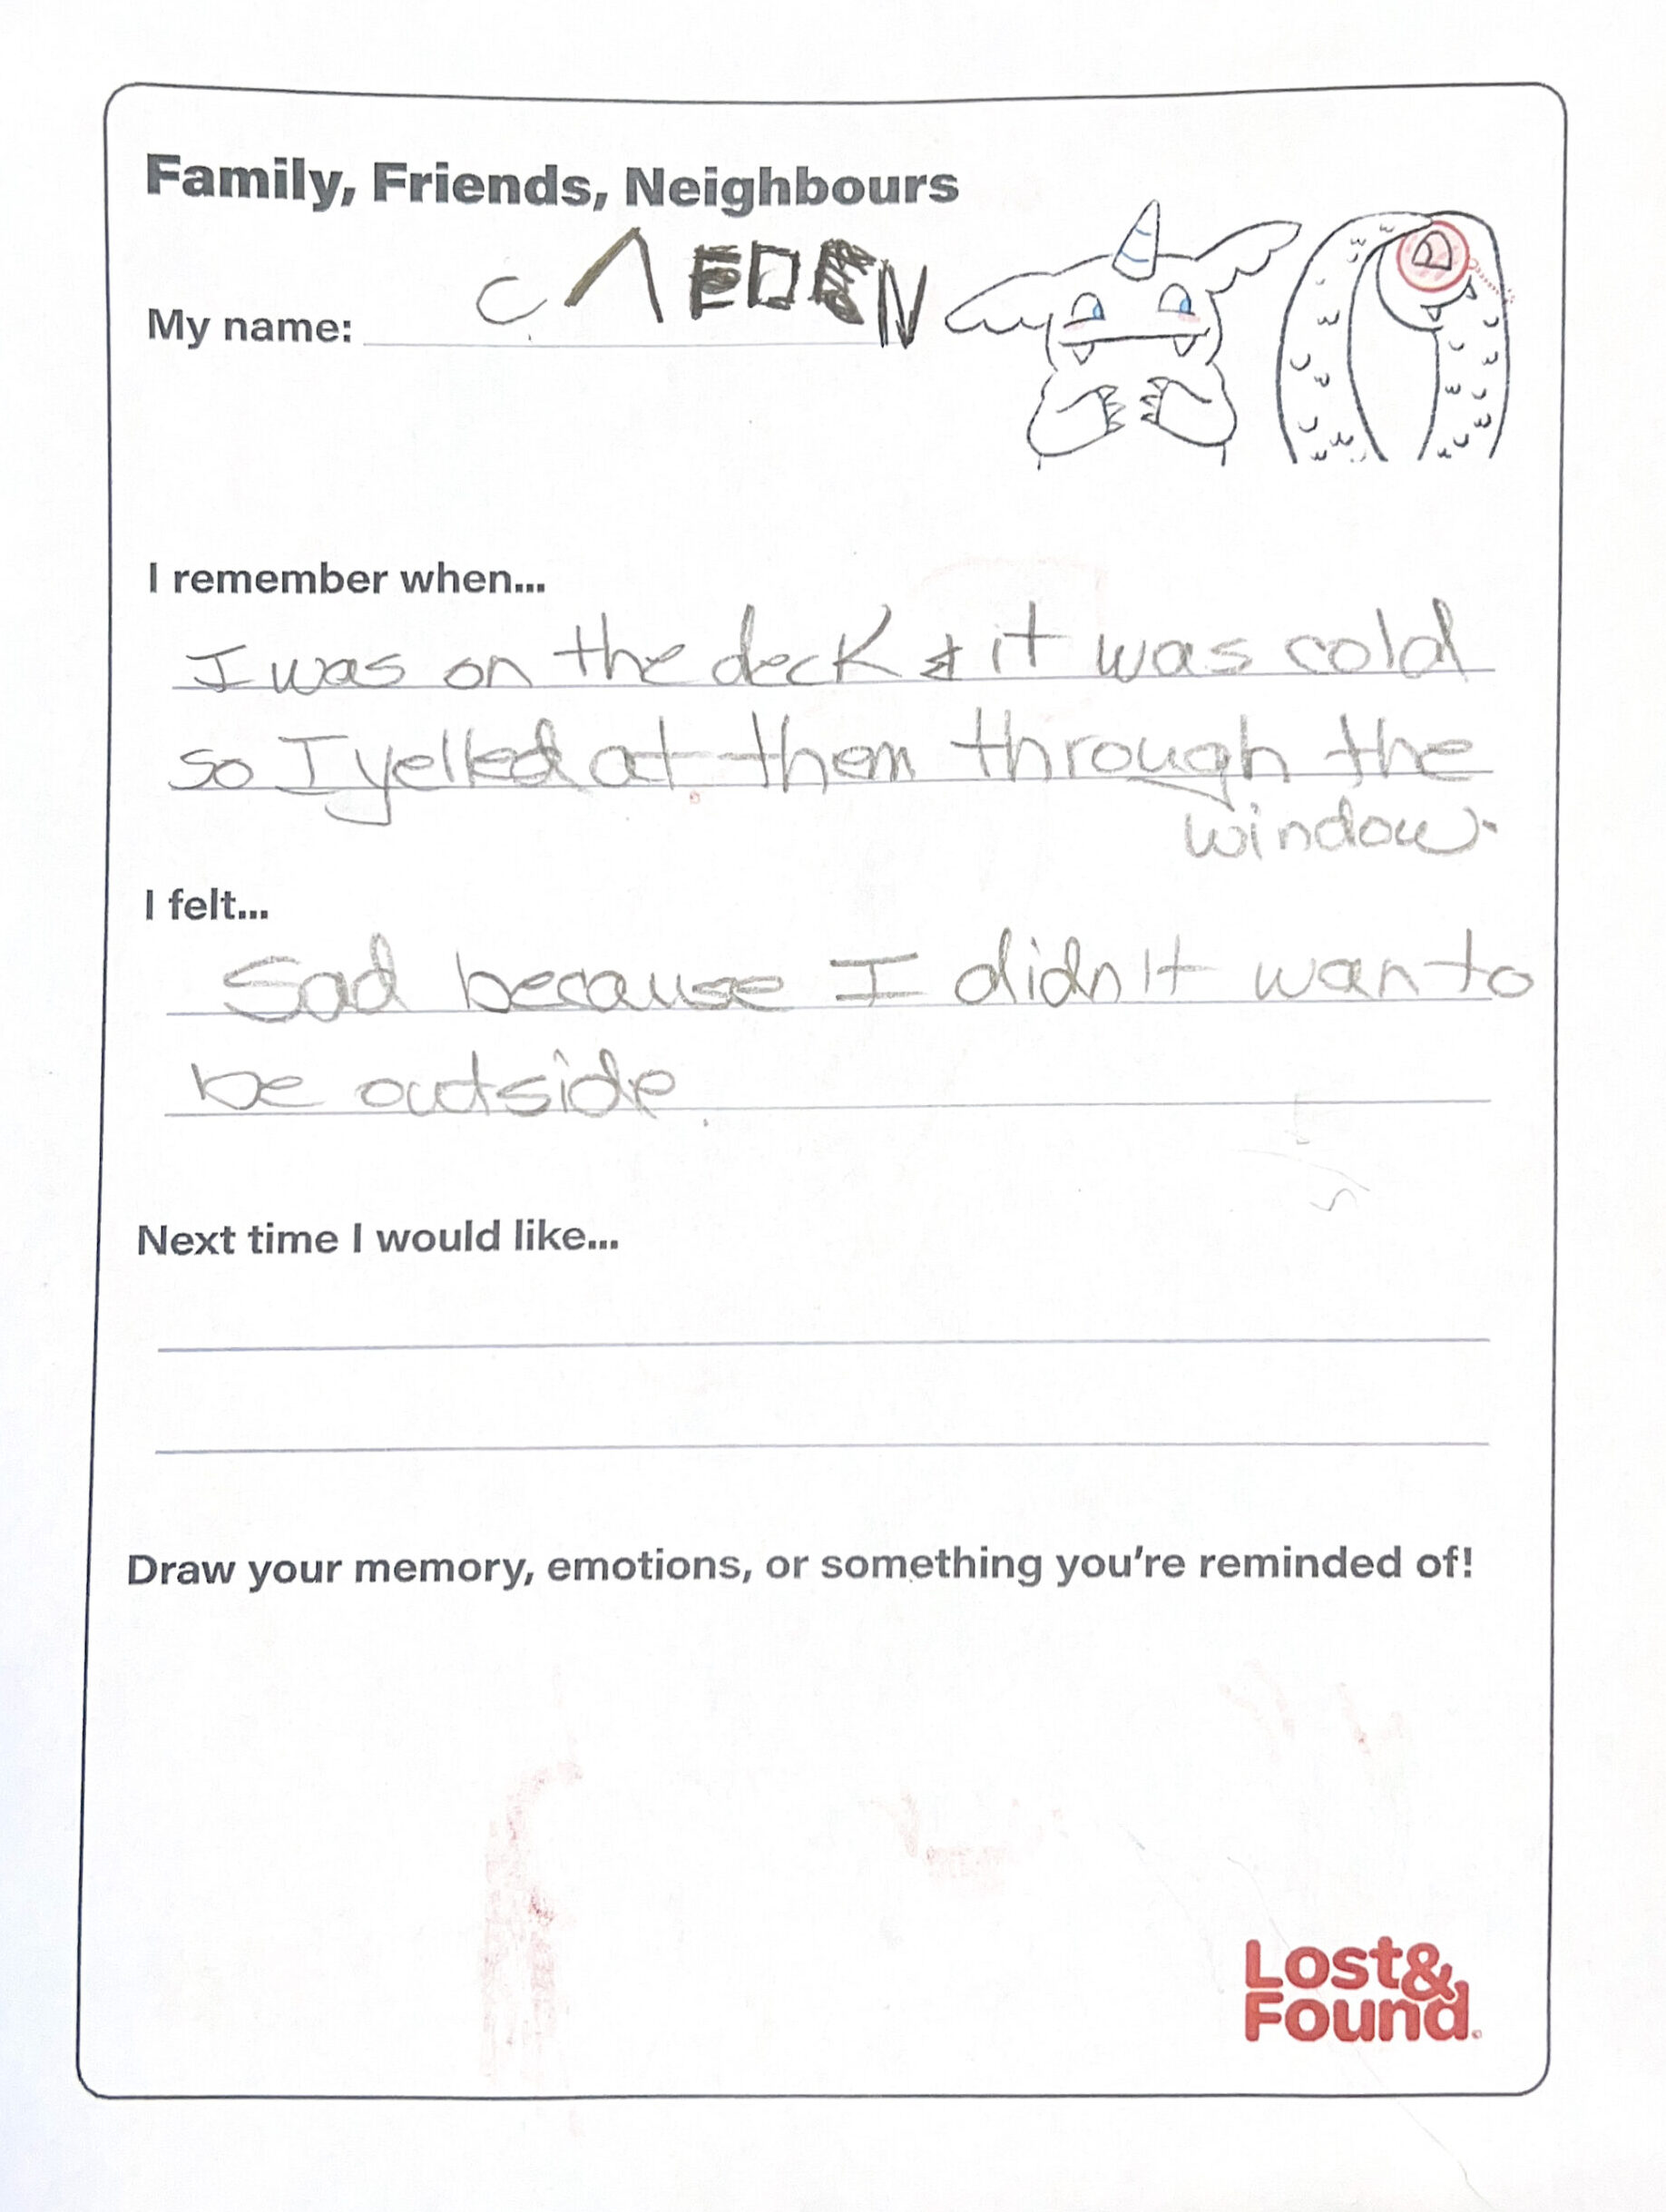 Family, Friends, Neighbours
My name: CAEDEN
I remember when...
I was on the deck & it was cold
so I yelled at them through the
window.
I felt...
Sad because I didn't wan to
be outside.
Next time I would like...
Draw your memory, emotions, or something you're reminded of!
Lost&
Found.